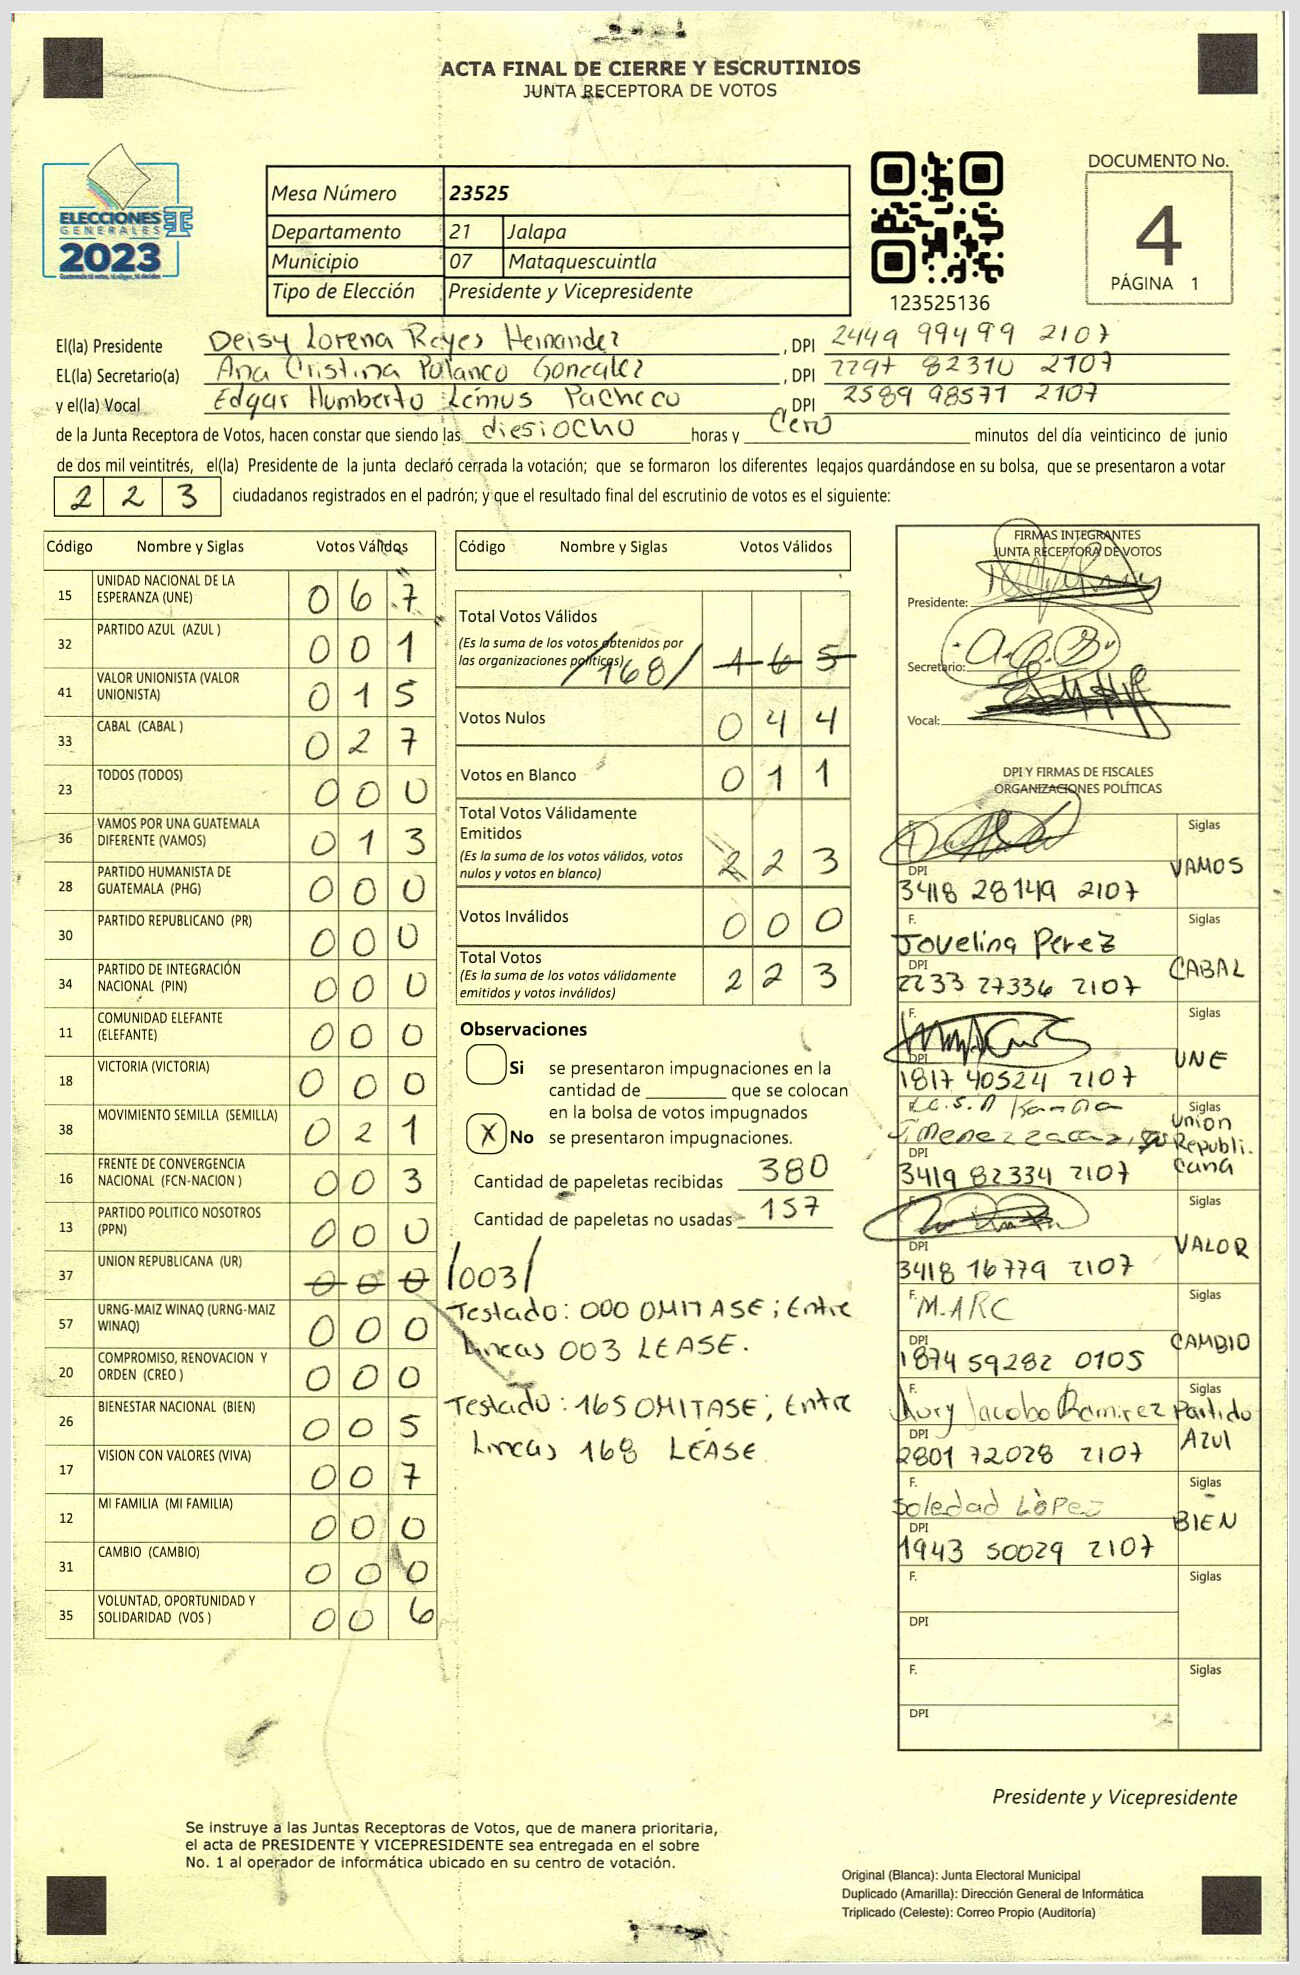 ACTA FINAL DE CIERRE Y ESCRUTINIOS
JUNTA RECEPTORA DE VOTOS
ELECCIONES
GENERALES
2023
TSE
Mesa Número 23525
Departamento 21 Jalapa
Municipio 07 Mataquescuintla
Tipo de Elección Presidente y Vicepresidente
123525136
DOCUMENTO No.
4
PÁGINA 1
El(la) Presidente Deisy Lorena Reyes Hernandez, DPI 2449 99499 2107
EL(la) Secretario(a) Ana Cristina Polanco Gonzalez, DPI 2297 82310 2107
y el(la) Vocal Edgar Humberto Lemus Pacheco, DPI 2589 98571 2107
de la Junta Receptora de Votos, hacen constar que siendo las diesiocho horas y Cero minutos del día veinticinco de junio
de dos mil veintitrés, el(la) Presidente de la junta declaró cerrada la votación; que se formaron los diferentes legajos guardándose en su bolsa, que se presentaron a votar
2 2 3 ciudadanos registrados en el padrón; y que el resultado final del escrutinio de votos es el siguiente:
Código Nombre y Siglas Votos Válidos
15 UNIDAD NACIONAL DE LA ESPERANZA (UNE) 0 6 7
32 PARTIDO AZUL (AZUL ) 0 0 1
41 VALOR UNIONISTA (VALOR UNIONISTA) 0 1 5
33 CABAL (CABAL ) 0 2 7
23 TODOS (TODOS) 0 0 0
36 VAMOS POR UNA GUATEMALA DIFERENTE (VAMOS) 0 1 3
28 PARTIDO HUMANISTA DE GUATEMALA (PHG) 0 0 0
30 PARTIDO REPUBLICANO (PR) 0 0 0
34 PARTIDO DE INTEGRACIÓN NACIONAL (PIN) 0 0 0
11 COMUNIDAD ELEFANTE (ELEFANTE) 0 0 0
18 VICTORIA (VICTORIA) 0 0 0
38 MOVIMIENTO SEMILLA (SEMILLA) 0 2 1
16 FRENTE DE CONVERGENCIA NACIONAL (FCN-NACION ) 0 0 3
13 PARTIDO POLITICO NOSOTROS (PPN) 0 0 0
37 UNION REPUBLICANA (UR) 0 0 0 /003/
57 URNG-MAIZ WINAQ (URNG-MAIZ WINAQ) 0 0 0
20 COMPROMISO, RENOVACION Y ORDEN (CREO ) 0 0 0
26 BIENESTAR NACIONAL (BIEN) 0 0 5
17 VISION CON VALORES (VIVA) 0 0 7
12 MI FAMILIA (MI FAMILIA) 0 0 0
31 CAMBIO (CAMBIO) 0 0 0
35 VOLUNTAD, OPORTUNIDAD Y SOLIDARIDAD (VOS ) 0 0 6
Código Nombre y Siglas Votos Válidos
Total Votos Válidos
(Es la suma de los votos obtenidos por
las organizaciones políticas) /168/ 1 6 5
Votos Nulos 0 4 4
Votos en Blanco 0 1 1
Total Votos Válidamente
Emitidos
(Es la suma de los votos válidos, votos
nulos y votos en blanco) 2 2 3
Votos Inválidos 0 0 0
Total Votos
(Es la suma de los votos válidamente
emitidos y votos inválidos) 2 2 3
Observaciones
Si se presentaron impugnaciones en la
cantidad de ________ que se colocan
en la bolsa de votos impugnados
X No se presentaron impugnaciones.
Cantidad de papeletas recibidas 380
Cantidad de papeletas no usadas 157
Testado: 000 OMITASE; Entre
Lineas 003 LEASE.
Testado: 165 OMITASE; Entre
Lineas 168 LEASE
FIRMAS INTEGRANTES
JUNTA RECEPTORA DE VOTOS
Presidente:
Secretario:
Vocal:
DPI Y FIRMAS DE FISCALES
ORGANIZACIONES POLÍTICAS
F. Siglas
VAMOS
DPI
3418 28149 2107
F. Siglas
Jovelina Perez
CABAL
DPI
2233 27336 2107
F. Siglas
UNE
DPI
1817 40524 2107
F. Siglas
Union
Republi-
cana
DPI
3419 82334 2107
F. Siglas
VALOR
DPI
3418 16779 2107
F. Siglas
M.ARC
CAMBIO
DPI
1874 59282 0105
F. Siglas
Aury Jacobo Ramirez Partido
Azul
DPI
2801 72028 2107
F. Siglas
Soledad López
BIEN
DPI
1943 50029 2107
F. Siglas
DPI
F. Siglas
DPI
Presidente y Vicepresidente
Se instruye a las Juntas Receptoras de Votos, que de manera prioritaria,
el acta de PRESIDENTE Y VICEPRESIDENTE sea entregada en el sobre
No. 1 al operador de informática ubicado en su centro de votación.
Original (Blanca): Junta Electoral Municipal
Duplicado (Amarilla): Dirección General de Informática
Triplicado (Celeste): Correo Propio (Auditoría)